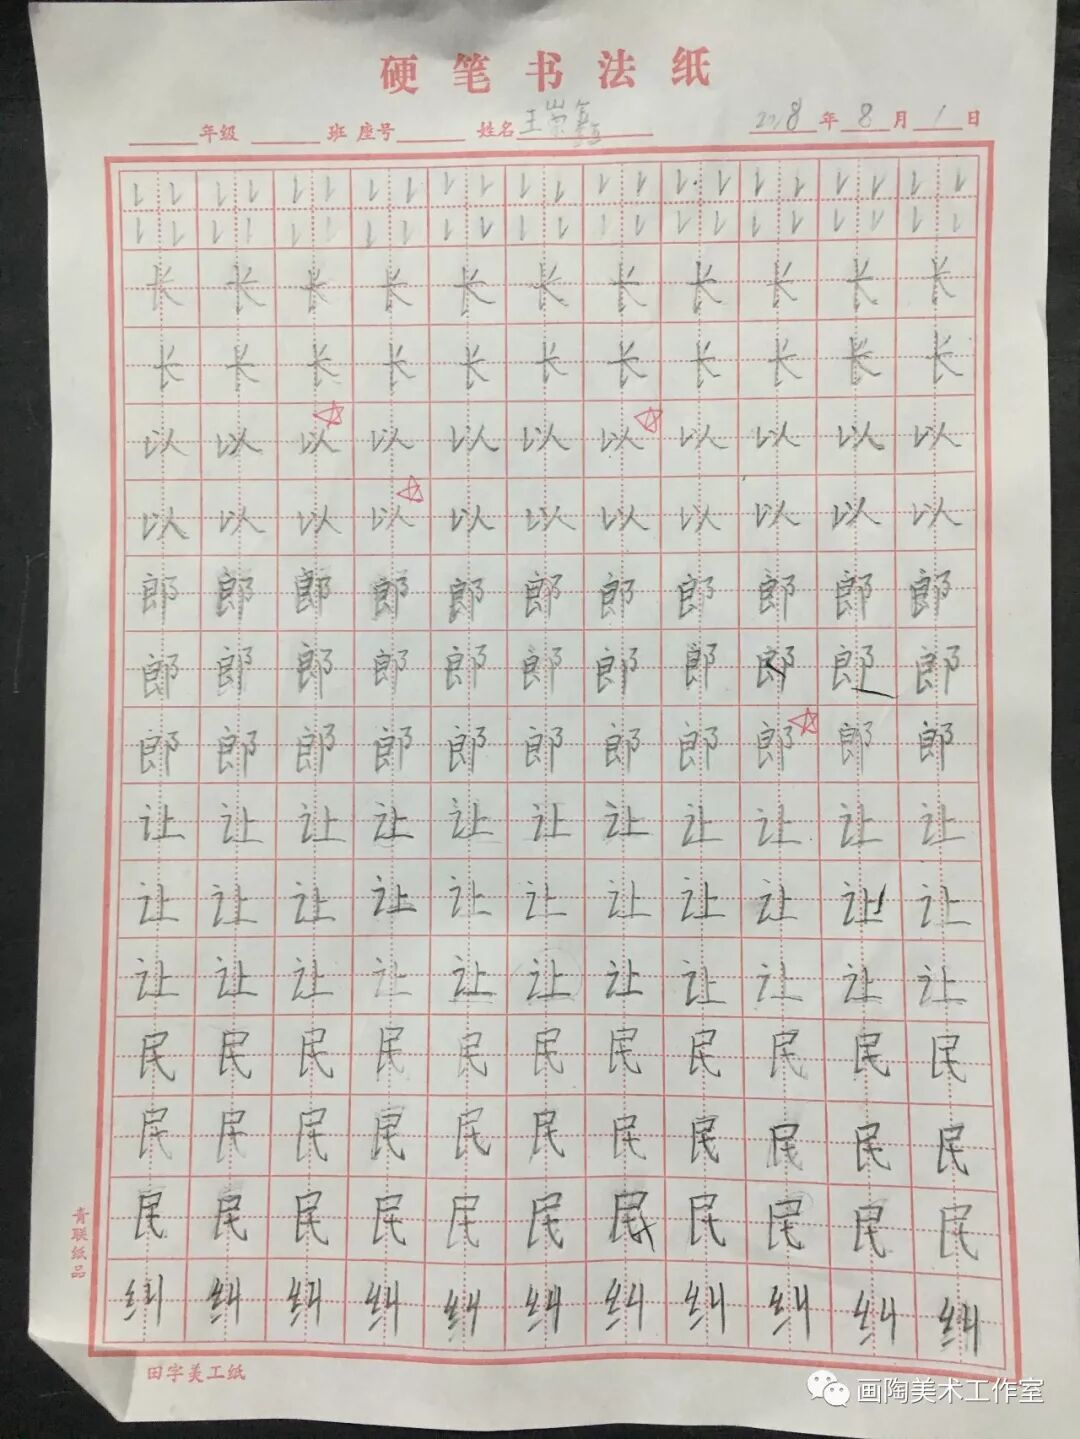 硬笔书法纸
年级 班 座号 姓名 王崇鑫 2018年8月1日
长长长长长长长长长长长
长长长长长长长长长长长
以以以以以以以以以以以
以以以以以以以以以以以
郎郎郎郎郎郎郎郎郎郎郎
郎郎郎郎郎郎郎郎郎郎郎
郎郎郎郎郎郎郎郎郎郎郎
让让让让让让让让让让让
让让让让让让让让让让让
让让让让让让让让让让让
民民民民民民民民民民民
民民民民民民民民民民民
民民民民民民民民民民民
纠纠纠纠纠纠纠纠纠纠纠
青联纸品
田字美工纸
画陶美术工作室